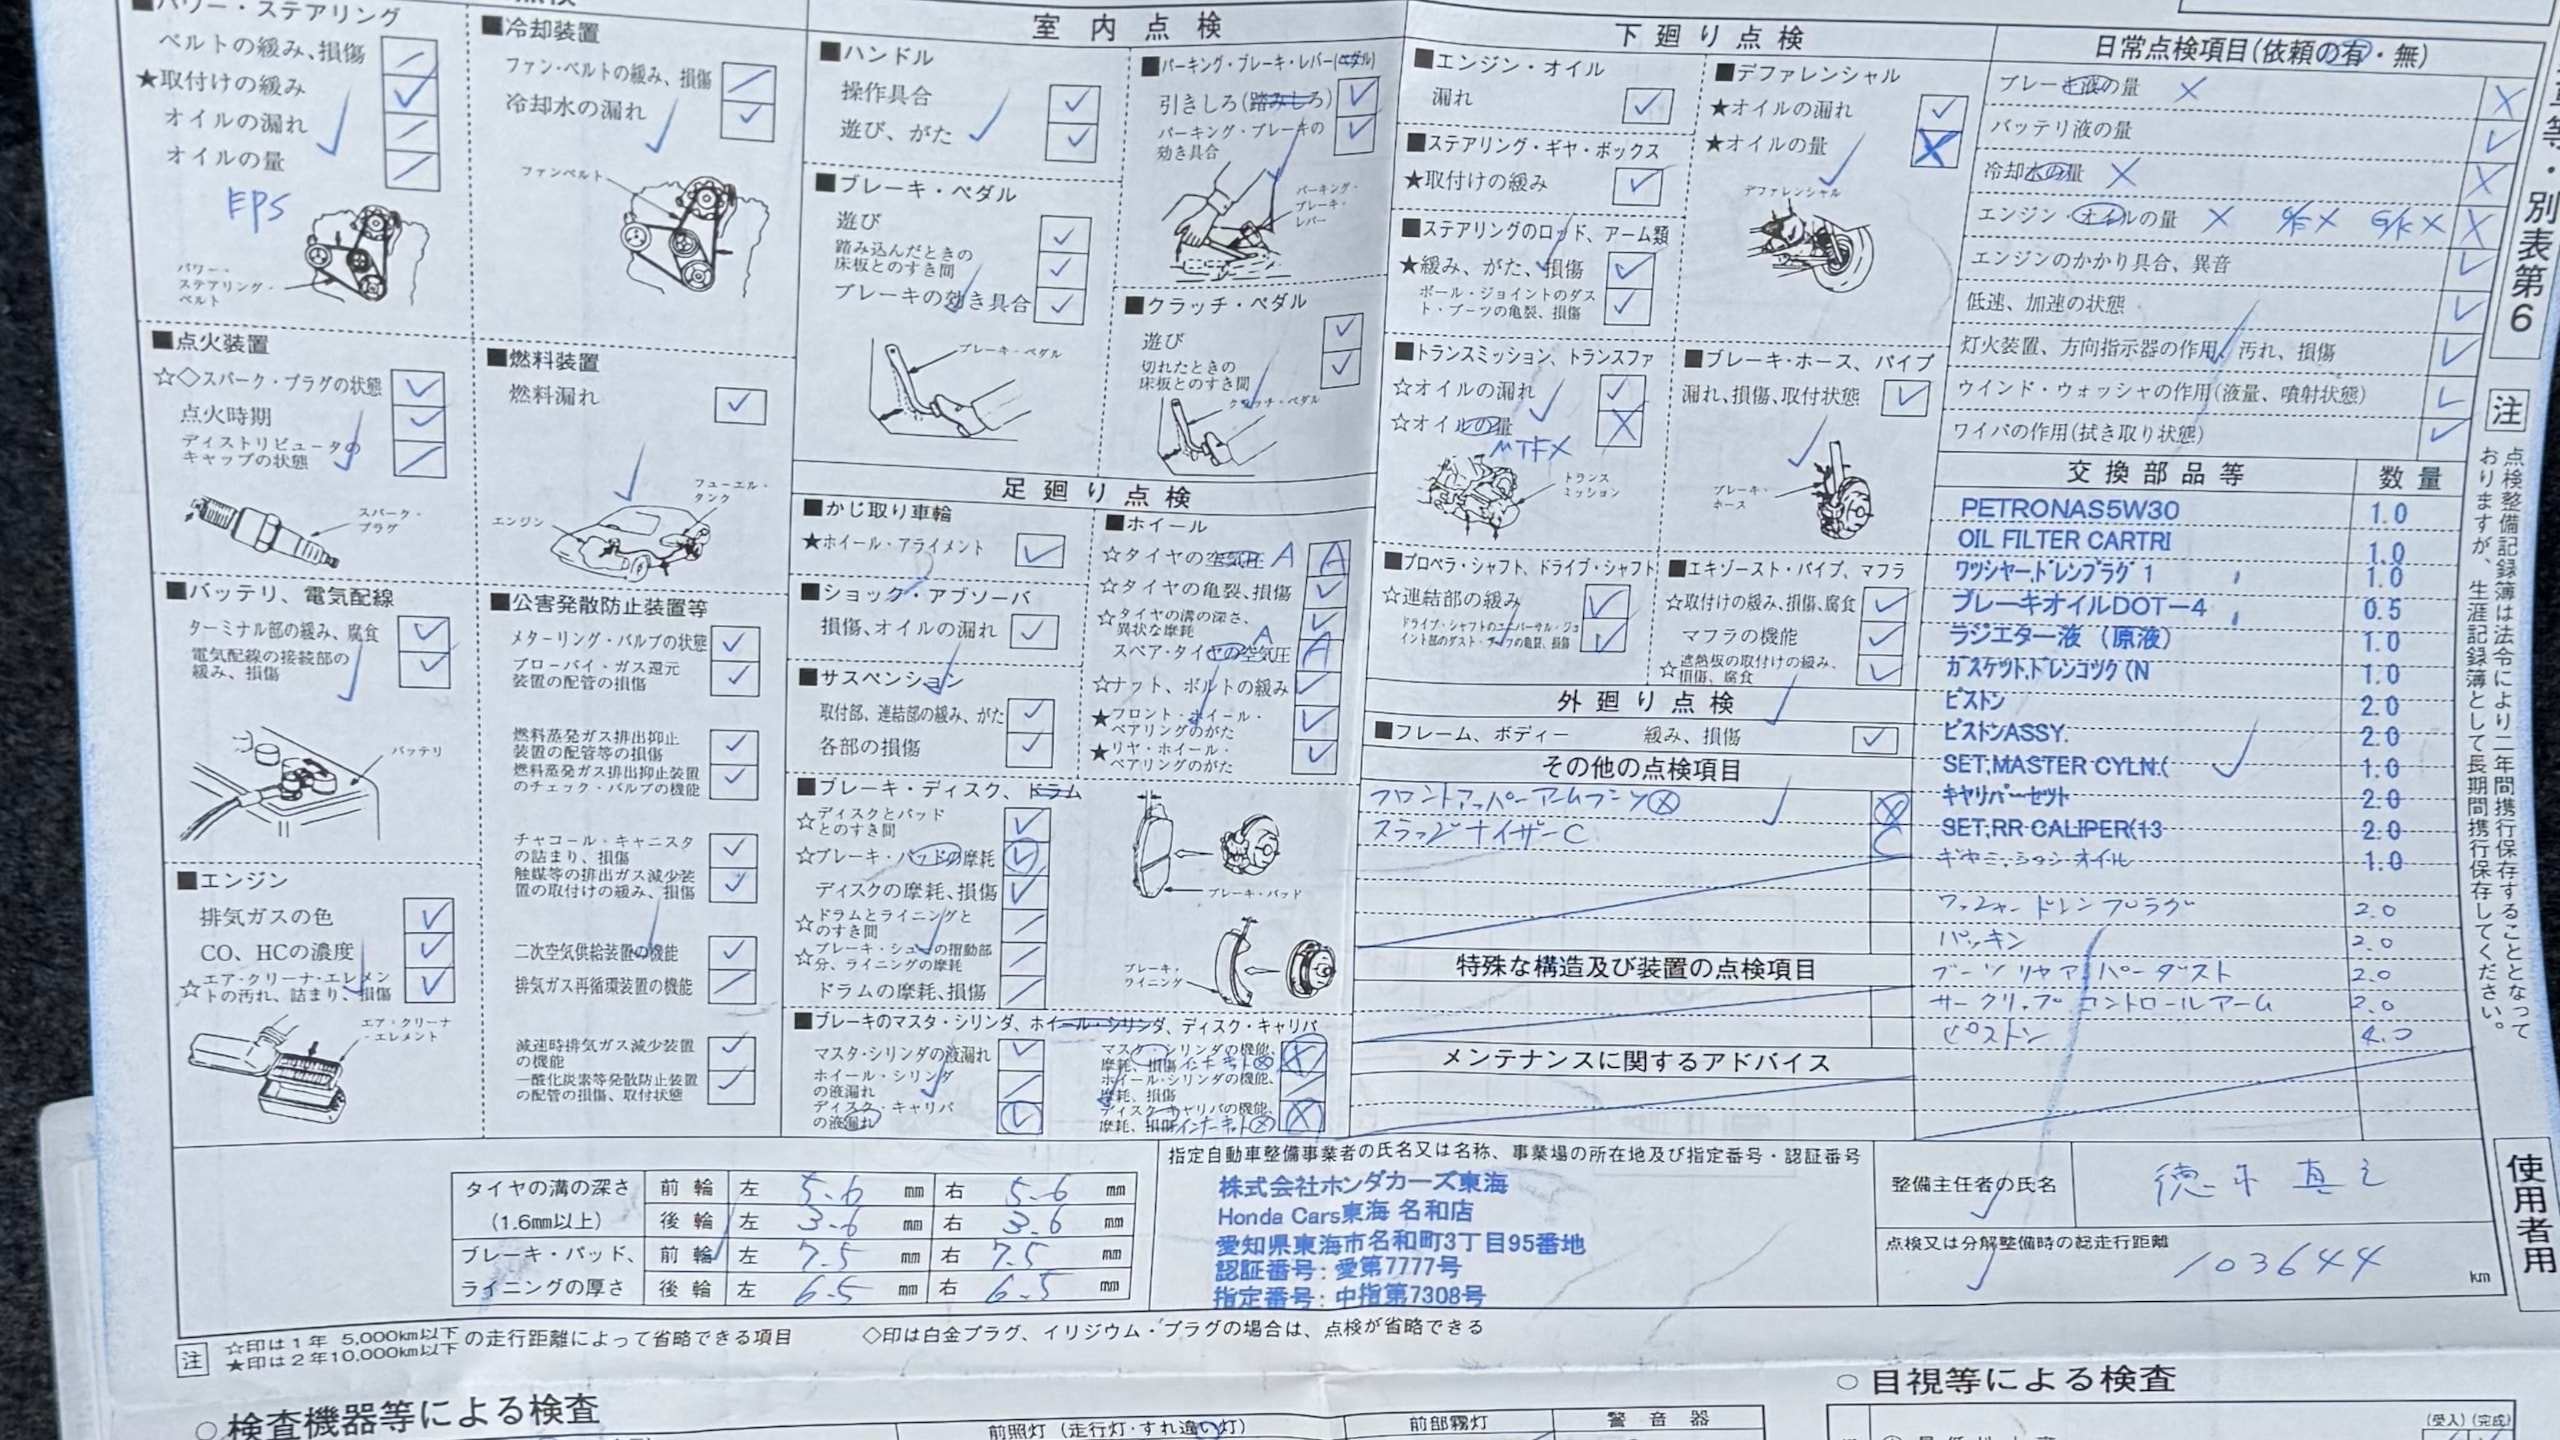 点検
■パワー・ステアリング
ベルトの緩み、損傷
★取付けの緩み
オイルの漏れ
オイルの量
EPS
パワー・
ステアリング・
ベルト
■冷却装置
ファン・ベルトの緩み、損傷
冷却水の漏れ
ファンベルト
■点火装置
☆◇スパーク・プラグの状態
点火時期
ディストリビュータの
キャップの状態
スパーク・
プラグ
■燃料装置
燃料漏れ
フューエル・
タンク
エンジン
■バッテリ、電気配線
ターミナル部の緩み、腐食
電気配線の接続部の
緩み、損傷
バッテリ
■公害発散防止装置等
メターリング・バルブの状態
ブローバイ・ガス還元
装置の配管の損傷
燃料蒸発ガス排出抑止
装置の配管等の損傷
燃料蒸発ガス排出抑止装置
のチェック・バルブの機能
チャコール・キャニスタ
の詰まり、損傷
触媒等の排出ガス減少装
置の取付けの緩み、損傷
二次空気供給装置の機能
排気ガス再循環装置の機能
減速時排気ガス減少装置
の機能
一酸化炭素等発散防止装置
の配管の損傷、取付状態
■エンジン
排気ガスの色
CO、HCの濃度
☆エア・クリーナ・エレメン
トの汚れ、詰まり、損傷
エア・クリーナ
・エレメント
室内点検
■ハンドル
操作具合
遊び、がた
■ブレーキ・ペダル
遊び
踏み込んだときの
床板とのすき間
ブレーキの効き具合
ブレーキ・ペダル
■パーキング・ブレーキ・レバー(ペダル)
引きしろ(踏みしろ)
パーキング・ブレーキの
効き具合
パーキング・
ブレーキ・
レバー
■クラッチ・ペダル
遊び
切れたときの
床板とのすき間
クラッチ・ペダル
足廻り点検
■かじ取り車輪
★ホイール・アライメント
■ショック・アブソーバ
損傷、オイルの漏れ
■サスペンション
取付部、連結部の緩み、がた
各部の損傷
■ホイール
☆タイヤの空気圧 A A
☆タイヤの亀裂、損傷
☆タイヤの溝の深さ、
異状な摩耗
A
スペア・タイヤの空気圧 A
☆ナット、ボルトの緩み
★フロント・ホイール・
ベアリングのがた
★リヤ・ホイール・
ベアリングのがた
■ブレーキ・ディスク、ドラム
☆ディスクとパッド
とのすき間
☆ブレーキ・パッドの摩耗
ディスクの摩耗、損傷
☆ドラムとライニングと
のすき間
☆ブレーキ・シューの摺動部
分、ライニングの摩耗
ドラムの摩耗、損傷
ブレーキ・パッド
ブレーキ・
ライニング
■ブレーキのマスタ・シリンダ、ホイール・シリンダ、ディスク・キャリパ
マスタ・シリンダの液漏れ
ホイール・シリンダ
の液漏れ
ディスク・キャリパ
の液漏れ
マスタ・シリンダの機能、
摩耗、損傷 インナーキット ⊗
ホイール・シリンダの機能、
摩耗、損傷
ディスク・キャリパの機能、
摩耗、損傷 インナーキット ⊗
下廻り点検
■エンジン・オイル
漏れ
■ステアリング・ギヤ・ボックス
★取付けの緩み
■ステアリングのロッド、アーム類
★緩み、がた、損傷
ボール・ジョイントのダス
ト・ブーツの亀裂、損傷
■デファレンシャル
★オイルの漏れ
★オイルの量
デファレンシャル
■トランスミッション、トランスファ
☆オイルの漏れ
☆オイルの量
MTFX
トランス
ミッション
■ブレーキ・ホース、パイプ
漏れ、損傷、取付状態
ブレーキ・
ホース
■プロペラ・シャフト、ドライブ・シャフト
☆連結部の緩み
ドライブ・シャフトのユニバーサル・ジョ
イント部のダスト・ブーツの亀裂、損傷
■エキゾースト・パイプ、マフラ
☆取付けの緩み、損傷、腐食
マフラの機能
☆遮熱板の取付けの緩み、
損傷、腐食
外廻り点検
■フレーム、ボディー 緩み、損傷
その他の点検項目
フロントアッパーアームブーツ ⊗ ⊗
スラッジナイザー C C
特殊な構造及び装置の点検項目
メンテナンスに関するアドバイス
日常点検項目(依頼の有・無)
ブレーキ液の量 X X
バッテリ液の量
冷却水の量 X X
エンジン・オイルの量 X O/F X G/K X X
エンジンのかかり具合、異音
低速、加速の状態
灯火装置、方向指示器の作用、汚れ、損傷
ウインド・ウォッシャの作用(液量、噴射状態)
ワイパの作用(拭き取り状態)
交換部品等 数量
PETRONAS5W30 1.0
OIL FILTER CARTRI 1.0
ワツシヤー,ドレンプラグ 1 1.0
ブレーキオイルDOTー4 0.5
ラジエター液(原液) 1.0
ガスケツト,ドレンコツク(N 1.0
ピストン 2.0
ピストンASSY. 2.0
SET,MASTER CYLN.( 1.0
キヤリパーセツト 2.0
SET,RR CALIPER(13 2.0
ギヤミッションオイル 1.0
ワッシャー ドレンプラグ 2.0
パッキン 2.0
ブーツ リヤアッパーダスト 2.0
サークリップ コントロールアーム 2.0
ピストン 4.0
別表第6
注
点検整備記録簿は法令により二年間携行保存することとなって
おりますが、生涯記録簿として長期間携行保存してください。
使用者用
タイヤの溝の深さ
(1.6mm以上)
前輪 左 5.6 mm 右 5.6 mm
後輪 左 3.6 mm 右 3.6 mm
ブレーキ・パッド、
ライニングの厚さ
前輪 左 7.5 mm 右 7.5 mm
後輪 左 6.5 mm 右 6.5 mm
指定自動車整備事業者の氏名又は名称、事業場の所在地及び指定番号・認証番号
株式会社ホンダカーズ東海
Honda Cars東海 名和店
愛知県東海市名和町3丁目95番地
認証番号:愛第7777号
指定番号:中指第7308号
整備主任者の氏名
点検又は分解整備時の総走行距離
103644 km
注
☆印は1年 5,000km以下
★印は2年10,000km以下
の走行距離によって省略できる項目
◇印は白金プラグ、イリジウム・プラグの場合は、点検が省略できる
○検査機器等による検査
前照灯(走行灯・すれ違い灯)
前部霧灯
警音器
○目視等による検査
(受入)(完成)